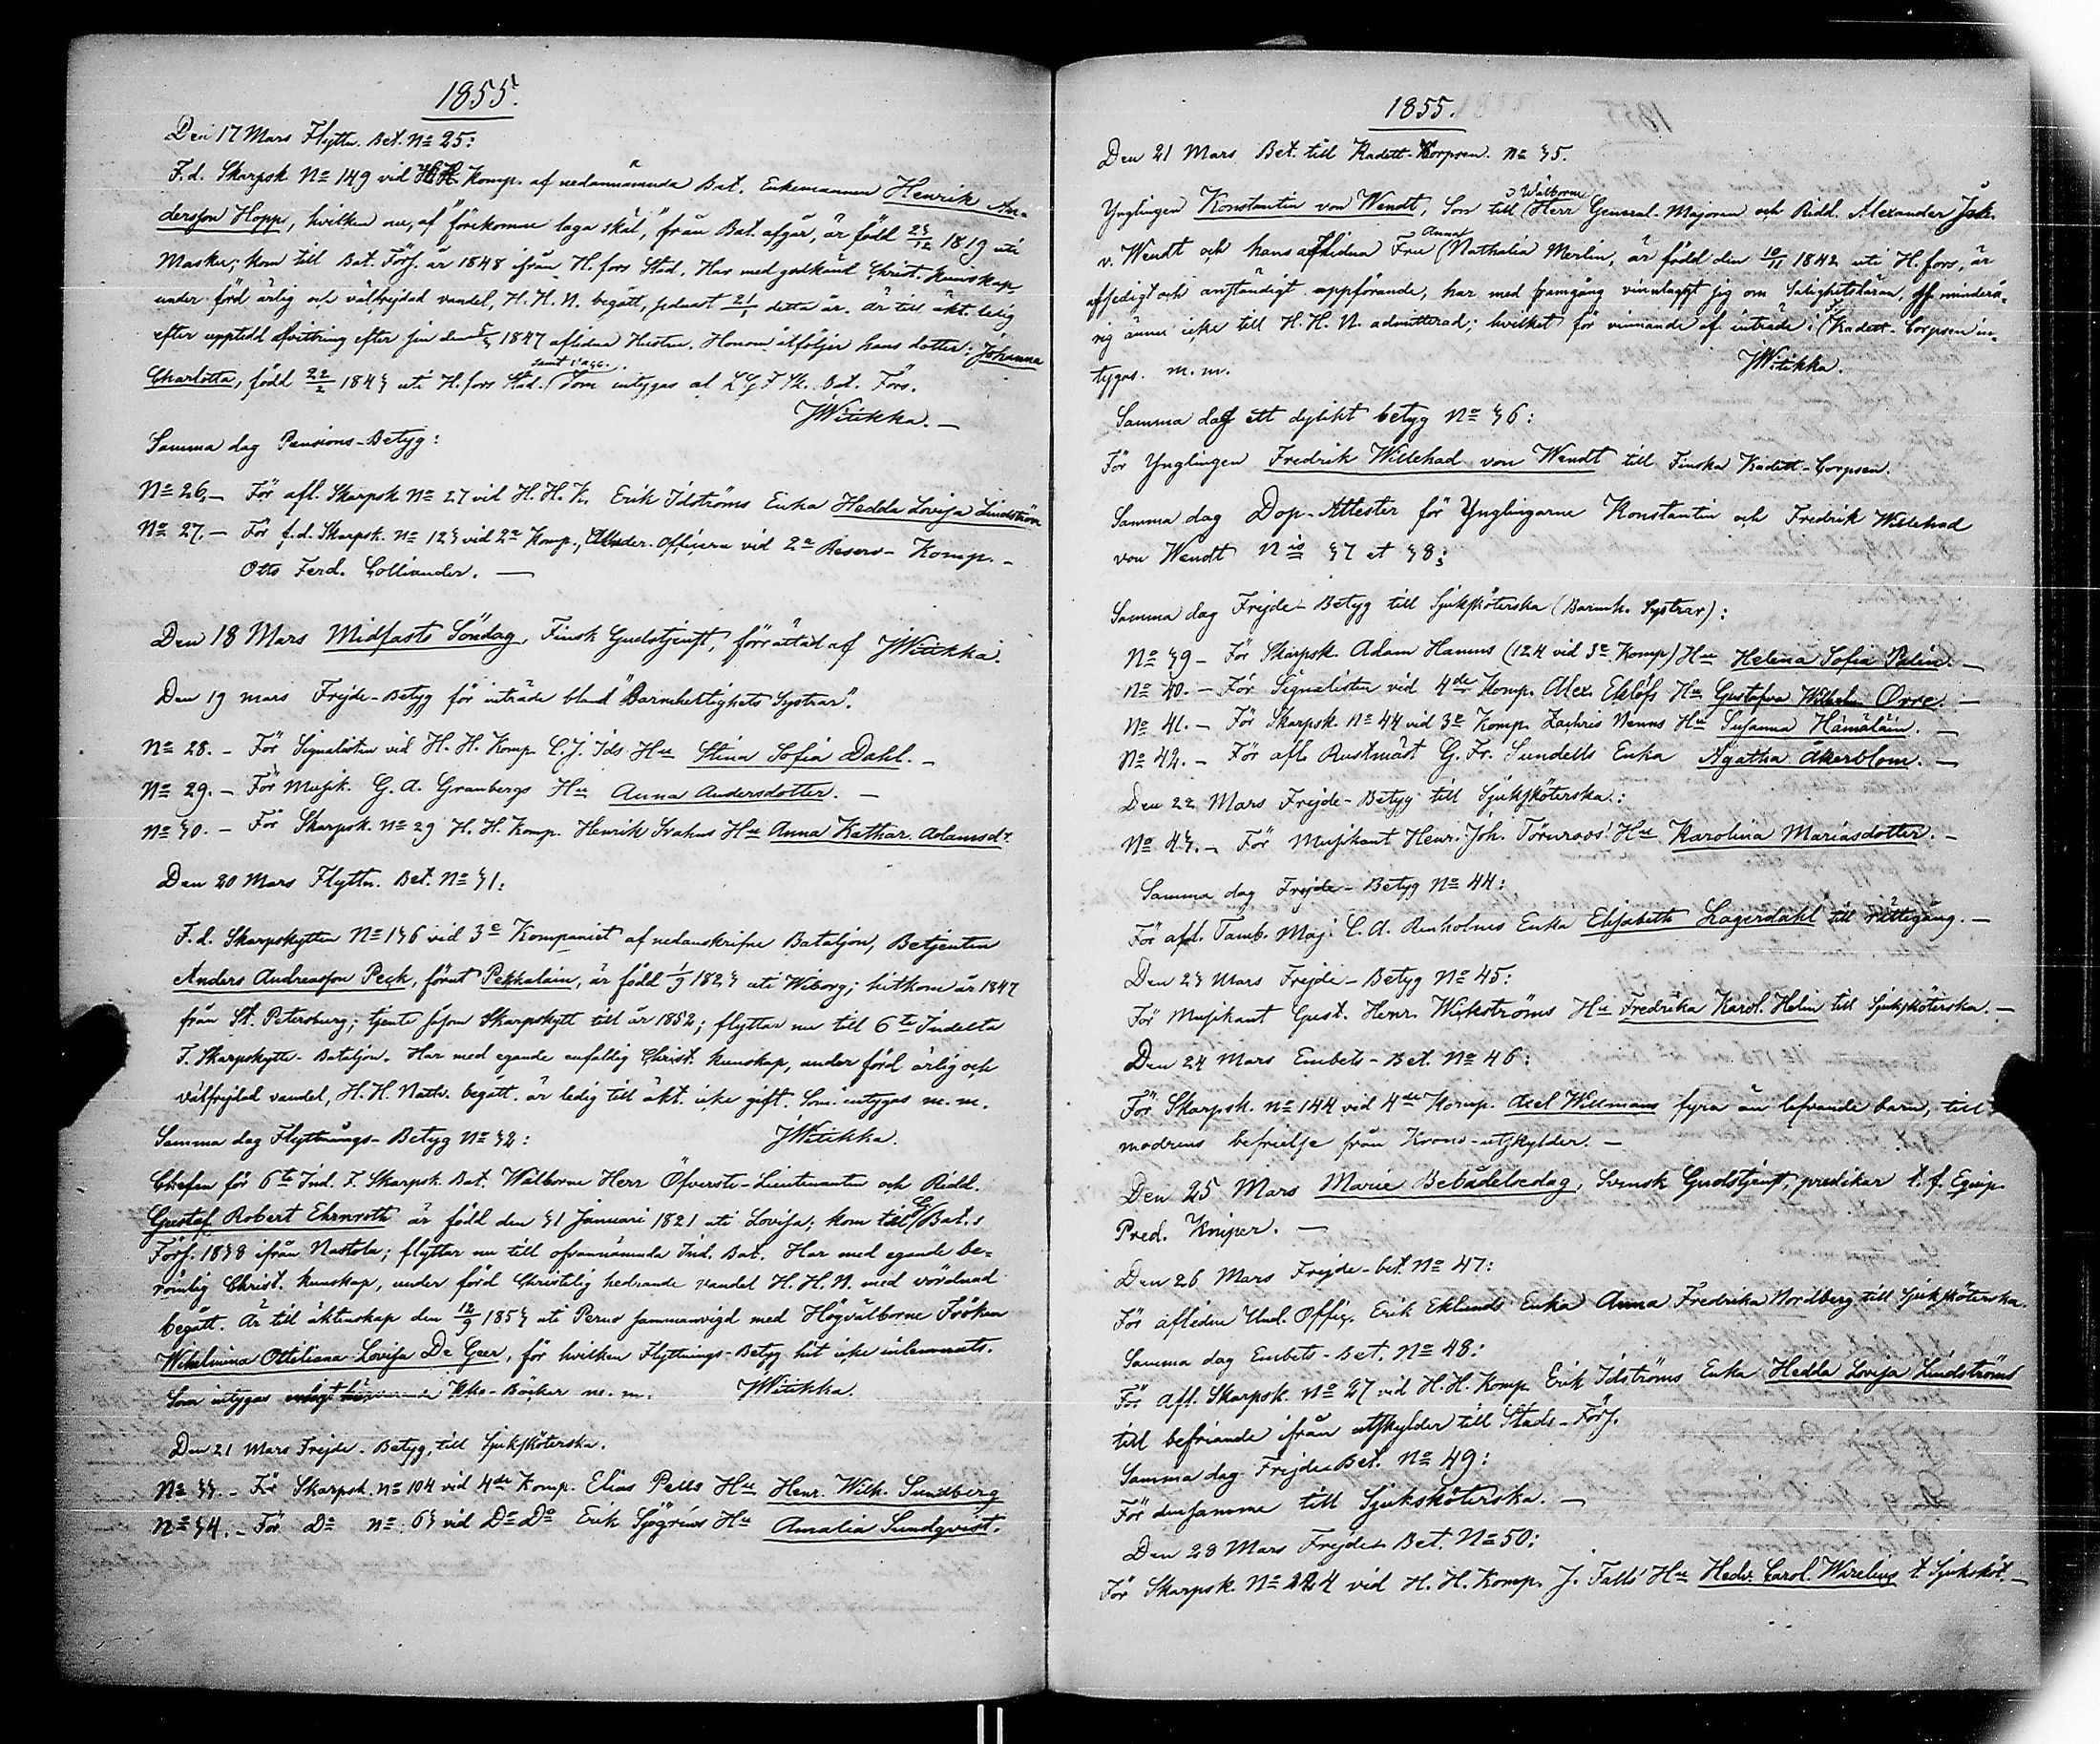 1855.
Den 17 Mars Flyttn. Bet. No 25:
F.d. Skarpsk. No 149 vid H.H. Komp. af nedannämnda Bat. Enkemannen Henrik An-
dersson Hopp, hvilken nu, af "förekomne laga skäl," från Bat. afgår, är född 23/12 1819 uti
Masku; kom till Bat. Förs. år 1848 ifrån H.fors Stad. Har med godkänd Christ. kunskap
under förd ärlig och välfrejdad vandel, H. H. N. begått, sednast 21/1 detta år. Är till äkt. ledig
efter upptedd afvittring efter sin den 1847 aflidna Hustru. Honom åtföljer hans dotter: Johanna
Charlotta, född 22/2 1843 uti H.fors Stad. samt vacc. Som intygas at L.G.F.Sk. Bat. Förs.
JWitikka.
Samma dag Pensions-Betyg:
No 26. - För afl. Skarpsk. No 27 vid H. H. K. Erik Idströms Enka Hedda Lovisa Lindström
No 27. - För f.d. Skarpsk. No 123 vid 2a Komp., Under-Officern vid 2a Reserv-Komp. -
Otto Ferd. Colliander. -
Den 18 Mars Midfasto Söndag, Finsk Gudstjenst, förrättad af JWitikka.
Den 19 mars Frejde-Betyg för inträde bland "Barmhertighets Systrar".
No 28. - För Signalisten vid H. H. Komp. C. J. Ids Hu Stina Sofia Dahl. -
No 29. - För Musik. G. A. Granbergs Hu Anna Andersdotter. -
No 30. - För Skarpsk. No 29 H. H. Komp. Henrik Svahns Hu Anna Kathar. Adamsdr.
Den 20 Mars Flyttn. Bet. No 31:
F.d. Skarpskytten No 136 vid 3e Kompaniet af nedanskrifne Bataljon, Betjenten
Anders Andreasson Peck, förut Pekkalain, är född 1/9 1823 uti Wiborg; hitkom år 1847
från St. Petersburg; tjente såsom Skarpskytt till år 1852; flyttar nu till 6te Indelta
F. Skarpskytte-Bataljon. Har med egande enfaldig Christ. kunskap, under förd ärlig och
välfrejdad vandel, H. H. Nattv. begått. är ledig till äkt. icke gift. Som intygas m. m.
JWitikka.
Samma dag Flyttnings-Betyg No 32:
Chefen för 6te Ind. F. Skarpsk. Bat. Wälborne Herr Öfverste-Lieutenanten och Ridd.
Gustaf Robert Ehrnrooth är född den 31 Januari 1821 uti Lovisa; kom till G Bat.s
Förs. 1838 ifrån Nastola; flyttar nu till ofvannämnda Ind. Bat. Har med egande be-
römlig Christ. kunskap, under förd Christelig hedrande vandel H. H. N. med vördnad
begått. Är till äktenskap den 12/9 1853 uti Perno sammanvigd med Högvälborne Fröken
Wilhelmina Ottiliana Lovisa De Geer, för hvilken Flyttnings-Betyg hit icke inlemnats.
Som intygas Kko-Böcker m. m. JWitikka.
Den 21 Mars Frejde-Betyg, till Sjuksköterska.
No 33. - För Skarpsk. No 104 vid 4de Komp. Elias Pells Hu Henr. Wilh. Sundberg
No 34. - För Do No 63 vid Do Do Erik Sjögréns Hu Amalia Sundqvist.
1855.
Den 21 Mars Bet. till Kadett-Corpsen. No 35.
Ynglingen Konstantin von Wendt, Son till Wälborne Herr General-Majoren och Ridd. Alexander Jak.
v. Wendt och hans aflidna Fru Anna Nathalia Merlin, är född den 10/11 1842 uti H.fors, är
af sedigt och anständigt uppförande, har med framgång vinnlagt sig om Salighetsläran, ss. minderå-
rig ännu icke till H. H. N. admitterad; hvilket för vinnande af inträde i Kadett-Corpsen in-
tygas. m. m.
JWitikka.
Samma dag ett dylikt betyg No 36:
För Ynglingen Fredrik Willehad von Wendt till Finska Kadett-Corpsen.
Samma dag Dop-Attester för Ynglingarne Konstantin och Fredrik Willehad
von Wendt Nis 37 et 38:
Samma dag Frejde-Betyg till Sjuksköterska (Barmh. Systrar):
No 39 - För Skarpsk. Adam Hanens (124 vid 3e Komp) Hu Helena Sofia Palin. -
No 40. - För Signalisten vid 4de Komp. Alex. Eklöfs Hu Gustafva Wilhelm. Orre. -
No 41. - För Skarpsk. No 44 vid 3e Komp. Zachris Nenns Hu Susanna Hämäläin. -
No 42. - För afl. Rustmäst. G. Fr. Sundells Enka Agatha Åkerblom. -
Den 22 Mars Frejde-Betyg till Sjuksköterska:
No 43. - För Musikant Henr. Joh. Törnroos' Hu Karolina Mariasdotter. -
Samma dag Frejde-Betyg No 44:
För afl. Tamb. Maj. C. A. Renholms Enka Elisabeth Lagerdahl till rättegång. -
Den 23 Mars Frejde-Betyg No 45:
För Musikant Gust. Henr. Wickströms Hu Fredrika Karol. Helin till Sjuksköterska. -
Den 24 Mars Embets-Bet. No 46:
För Skarpsk. No 144 vid 4de Komp. Axel Willmans fyra än lefvande barn, till
modrens befrielse från Krono-utskylder. -
Den 25 Mars Marie Bebådelsedag, Svensk Gudstjenst, predikar t. f. Eqvip.
Pred. Kniper. -
Den 26 Mars Frejde-bet. No 47:
För aflidne Und. Offic. Erik Eklunds Enka Anna Fredrika Nordberg till Sjuksköterska.
Samma dag Embets-Bet. No 48:
För Afl. Skarpsk. No 27 vid H. H. Komp. Erik Idströms Enka Hedda Lovisa Lindströms
till befriande ifrån utskylder till Stads-Förs.
Samma dag Frejde Bet. No 49:
För densamma till Sjuksköterska. -
Den 28 Mars Frejde-Bet. No 50:
För Skarpsk. No 224 vid H. H. Komp. J. Falls' Hu Hedv. Carol. Warelius t. Sjuksköt. -